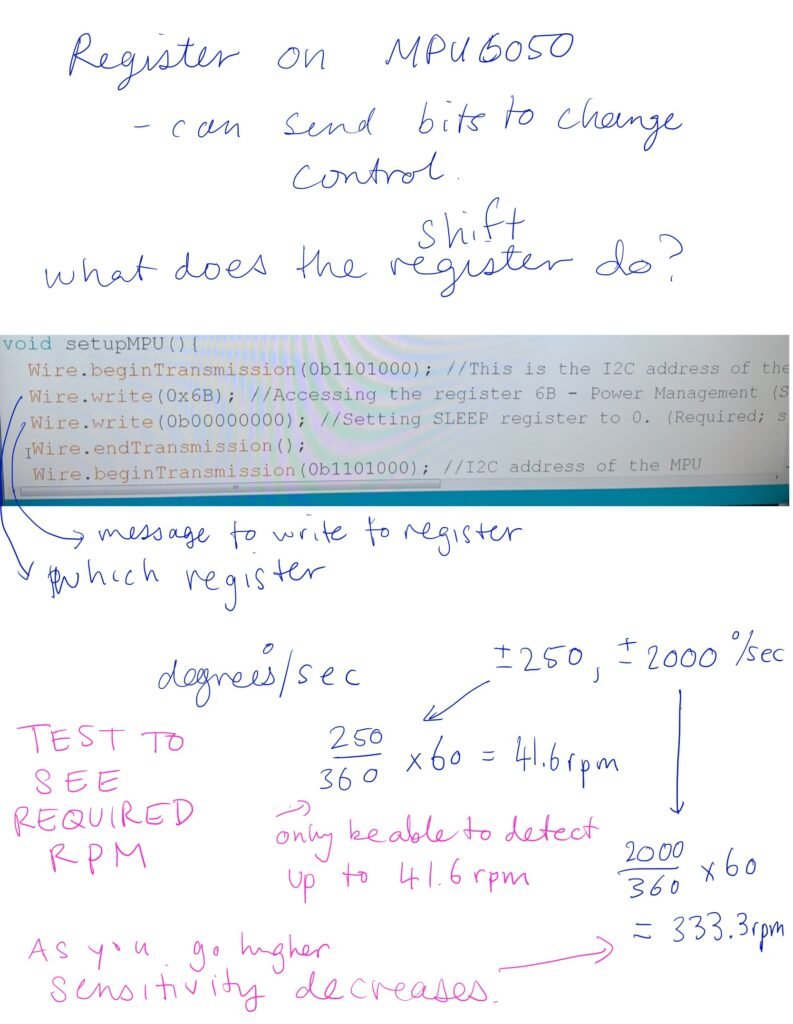 Register on MPU6050
- can send bits to change
control.
shift
what does the register do?
void setupMPU(){
Wire.beginTransmission(0b1101000); //This is the I2C address of the
Wire.write(0x6B); //Accessing the register 6B - Power Management (S
Wire.write(0b00000000); //Setting SLEEP register to 0. (Required; s
Wire.endTransmission();
Wire.beginTransmission(0b1101000); //I2C address of the MPU
→ message to write to register
which register
degrees°/sec
±250, ±2000 °/sec
TEST TO
SEE
REQUIRED
RPM
250/360 × 60 = 41.6rpm
→ only be able to detect
up to 41.6 rpm
2000/360 × 60
= 333.3rpm
As you go higher
sensitivity decreases.